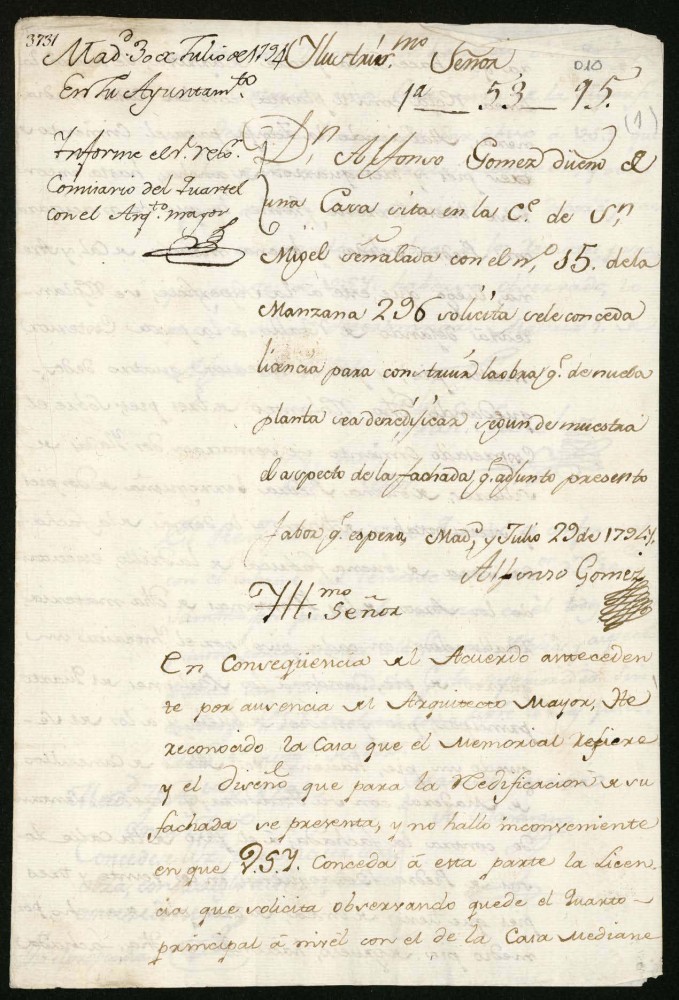 3731
Mad.d 30 de Julio de 1794
En su Ayuntam.to
Informe el s.r reg.or
Comisario del Quartel
con el Arq.to mayor
Ylustris.mo Señor
010
1a 53 15.
(1)
D.n Alfonso Gomez dueño de
una Casa sita en la C.e de S.n
Migel señalada con el n.o 15. de la
Manzana 296 solicita se le conceda
licencia para construir la obra q.e de nueba
planta sea de redificar segun demuestra
el aspecto de la fachada q.e adjunto presento
fabor q.e espera, Mad.d y Julio 29 de 1794.
Alfonso Gomez
Yll.mo Señor
En Conseqüencia del Acuerdo anteceden
te por ausencia del Arquitecto Mayor, He
reconocido la Casa que el Memorial refiere
y el diseño que para la Redificacion de su
fachada se presenta, y no hallo inconveniente
en que V.S.Y. Conceda á esta parte la Licen-
cia que solicita observando quede el Quarto
principal á nivel con el de la Casa Mediane